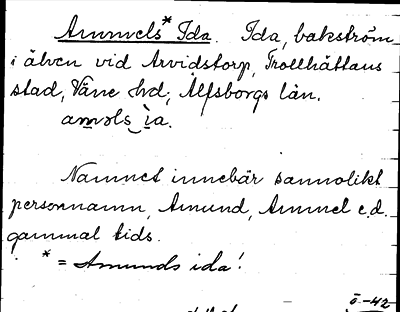 Ammels* Ida. Ida, bakström
i älven vid Arvidstorp, Trollhättans
stad, Väne hd, Älfsborgs län.
aməls ìa.
Namnet innebär sannolikt
personnamn, Amund, Ammel e.d.
gammal tids.
* = Amunds ida!
ö-42